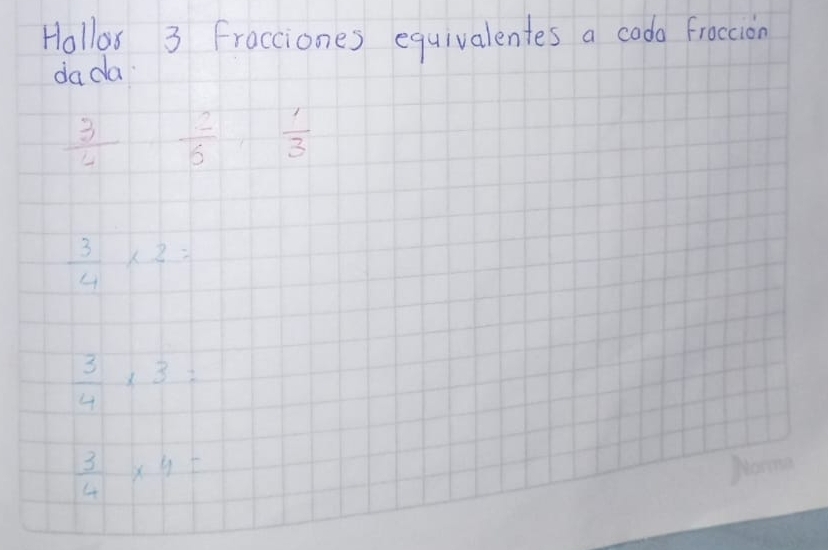 Hallar 3 fracciones equivalentes a cada fracción
dada.
3/4 2/5 1/3
3/4 x 2 =
3/4 x 3 =
3/4 x 4 =
Norma